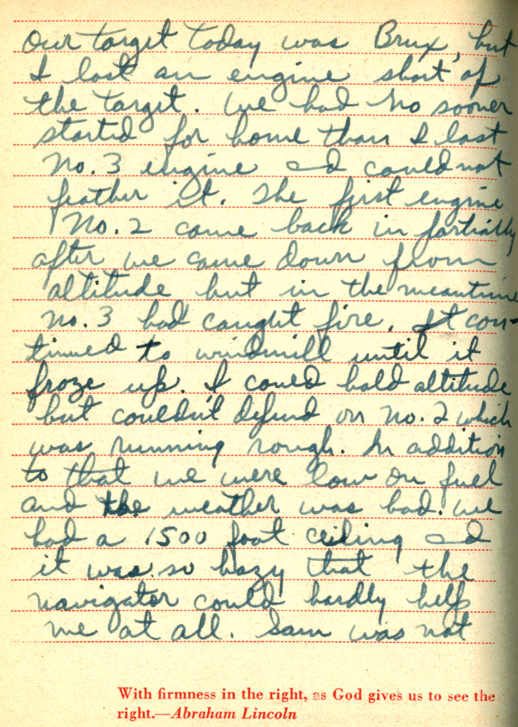 Our target today was Brux, but
I lost an engine short of
the target. We had no sooner
started for home than I lost
No. 3 engine and I could not
feather it. The first engine
No. 2 came back in partially
after we came down from
altitude but in the meantime
No. 3 had caught fire. It con-
tinued to windmill until it
froze up. I could hold altitude
but couldn't depend on No. 2 which
was running rough. In addition
to that we were low on fuel
and the weather was bad. We
had a 1500 foot ceiling and
it was so hazy that the
navigator could hardly help
me at all. Sam was not
With firmness in the right, as God gives us to see the
right.—Abraham Lincoln